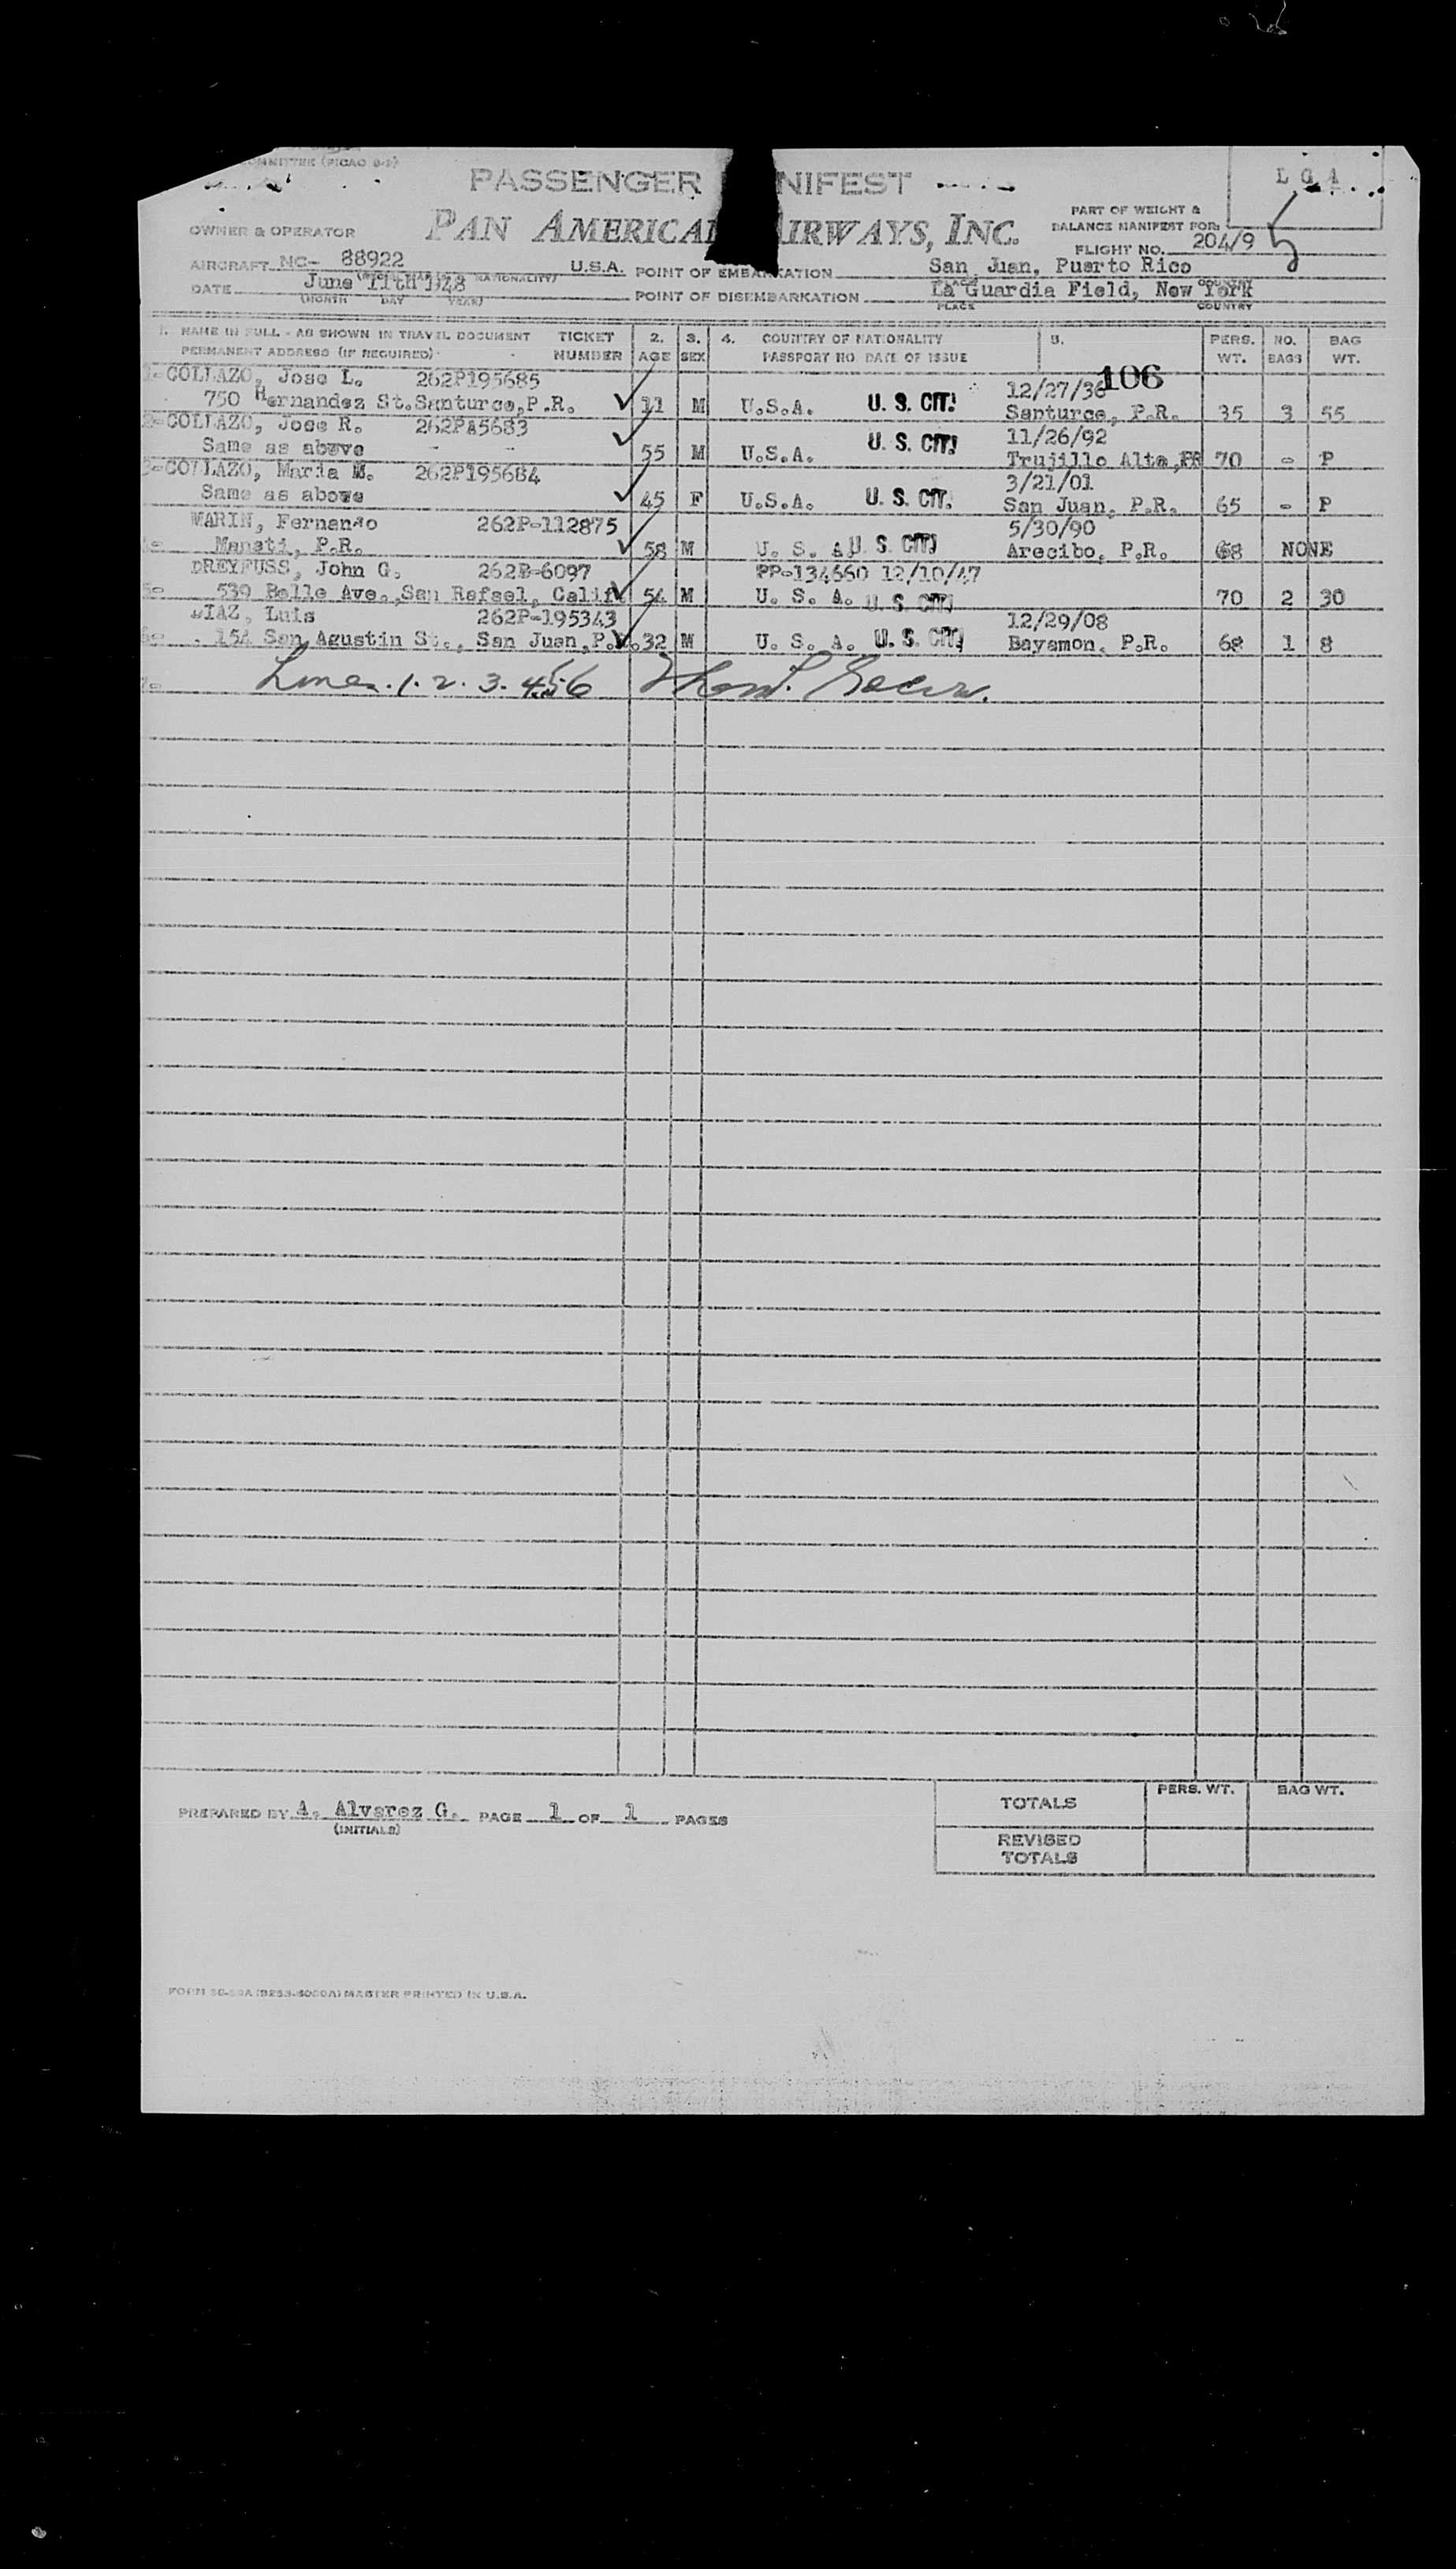 COMMITTEE (PICAO 8-2)
L G A
PASSENGER NIFEST
PART OF WEIGHT &
BALANCE MANIFEST FOR:
OWNER & OPERATOR
PAN AMERICA IRWAYS, INC.
FLIGHT NO. 204/9
AIRCRAFT NC- 88922 NATIONALITY) U.S.A. POINT OF EMBARKATION San Juan, Puerto Rico
DATE June 11th 1948 POINT OF DISEMBARKATION La Guardia Field, New York
(MONTH DAY YEAR) PLACE COUNTRY
1. NAME IN FULL - AS SHOWN IN TRAVEL DOCUMENT TICKET 2. 3. 4. COUNTRY OF NATIONALITY 5. PERS. NO. BAG
PERMANENT ADDRESS (IF REQUIRED) NUMBER AGE SEX PASSPORT NO. DATE OF ISSUE WT. BAGS WT.
106
1- COLLAZO, Jose L. 262P195685 12/27/36
750 Hernandez St.Santurce,P.R. 11 M U.S.A. U. S. CIT. Santurce, P.R. 35 3 55
2- COLLAZO, Jose R. 262PA5683 11/26/92
Same as above 55 M U.S.A. U. S. CIT. Trujillo Alto,PR 70 - P
3- COLLAZO, Maria M. 262P195684 3/21/01
Same as above 45 F U.S.A. U. S. CIT. San Juan, P.R. 65 - P
MARIN, Fernando 262P-112875 5/30/90
4- Manati, P.R. 58 M U. S. A. U. S. CIT. Arecibo, P.R. 68 NONE
DREYFUSS, John G. 262B-6097 PP-134660 12/10/47
5- 539 Belle Ave.,San Rafael, Calif. 54 M U. S. A. U. S. CIT. 70 2 30
DIAZ, Luis 262P-195343 12/29/08
6- 154 San Agustin St., San Juan,P.R. 32 M U. S. A. U. S. CIT. Bayamon, P.R. 68 1 8
7- Lines. 1. 2. 3. 4.5.6
PREPARED BY A. Alvarez G. PAGE 1 OF 1 PAGES
(INITIALS)
PERS. WT. BAG WT.
TOTALS
REVISED
TOTALS
MASTER PRINTED IN U.S.A.